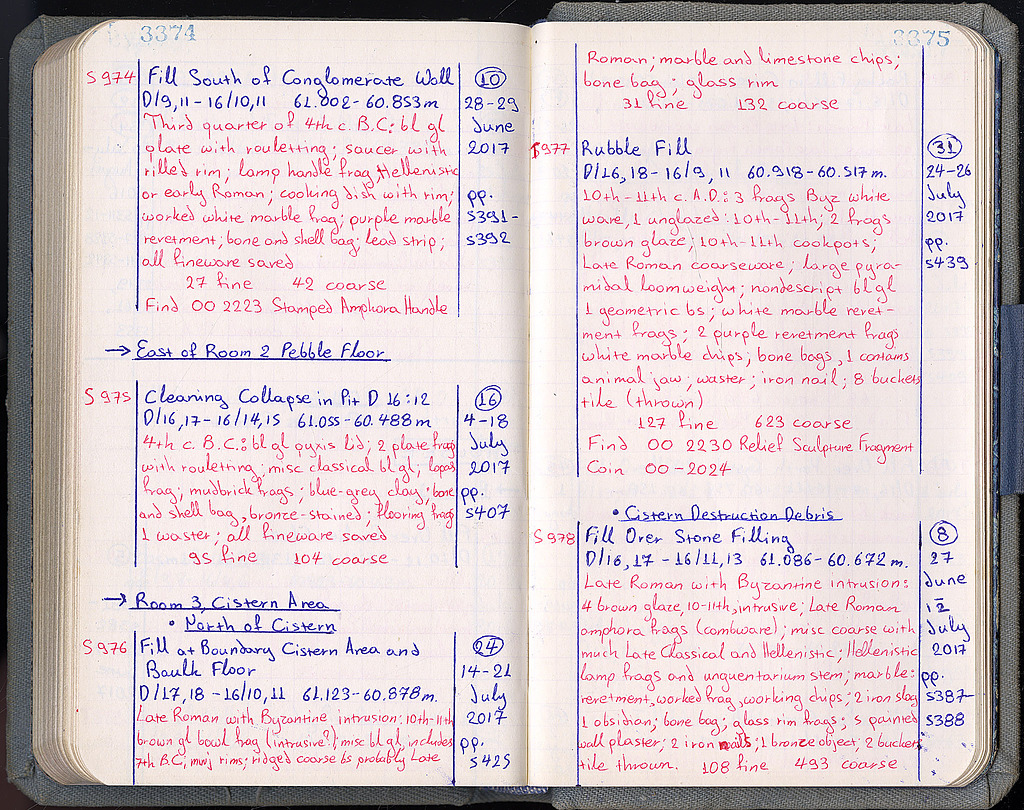 3374
S974 Fill South of Conglomerate Wall ⑩
D/9,11-16/10,11 61.002-60.853m 28-29
Third quarter of 4th c. B.C: bl gl June
plate with rouletting; saucer with 2017
rilled rim; lamp handle frag Hellenistic
or early Roman; cooking dish with rim; pp.
worked white marble frag; purple marble 5391-
revetment; bone and shell bag; lead strip; 5392
all fineware saved
27 fine 42 coarse
Find OO 2223 Stamped Amphora Handle
→ East of Room 2 Pebble Floor
S975 Cleaning Collapse in Pit D 16:12 ⑯
D/16,17-16/14,15 61.055-60.488m 4-18
4th c. B.C.: bl gl pyxis lid; 2 plate frags July
with rouletting; misc classical bl gl; lopas 2017
frag; mudbrick frags; blue-grey clay; bone pp.
and shell bag, bronze-stained; flooring frags 5407
1 waster; all fineware saved
95 fine 104 coarse
→ Room 3, Cistern Area
• North of Cistern
S976 Fill at Boundary Cistern Area and ㉔
Baulk Floor 14-21
D/17,18-16/10,11 61.123-60.878m. July
Late Roman with Byzantine intrusion: 10th-11th 2017
brown gl bowl frag (intrusive?); misc bl gl, includes pp.
7th B.C; rims; ridged coarse bs probably Late 5425
3375
Roman; marble and limestone chips;
bone bag; glass rim
31 fine 132 coarse
S977 Rubble Fill ㉛
D/16,18-16/9,11 60.918-60.517m. 24-26
10th-11th c. A.D.: 3 frags Byz white July
ware, 1 unglazed: 10th-11th; 2 frags 2017
brown glaze; 10th-11th cookpots; pp.
Late Roman coarseware; large pyra- 5439
midal loomweight; nondescript bl gl
1 geometric bs; white marble revet-
ment frags; 2 purple revetment frags
white marble chips; bone bags, 1 contains
animal jaw; waster; iron nail; 8 buckets
tile (thrown)
127 fine 623 coarse
Find OO 2230 Relief Sculpture Fragment
Coin OO-2024
• Cistern Destruction Debris
S978 Fill Over Stone Filling ⑧
D/16,17-16/11,13 61.086-60.672m. 27
Late Roman with Byzantine intrusion: June
4 brown glaze, 10-11th, intrusive; Late Roman 12
amphora frags (combware); misc coarse with July
much Late Classical and Hellenistic; Hellenistic 2017
lamp frags and unguentarium stem; marble: pp.
revetment, worked frag, working chips; 2 iron slag 5387-
1 obsidian; bone bag; glass rim frags; 5 painted 5388
wall plaster; 2 iron nails; 1 bronze object; 2 buckets
tile thrown. 108 fine 493 coarse